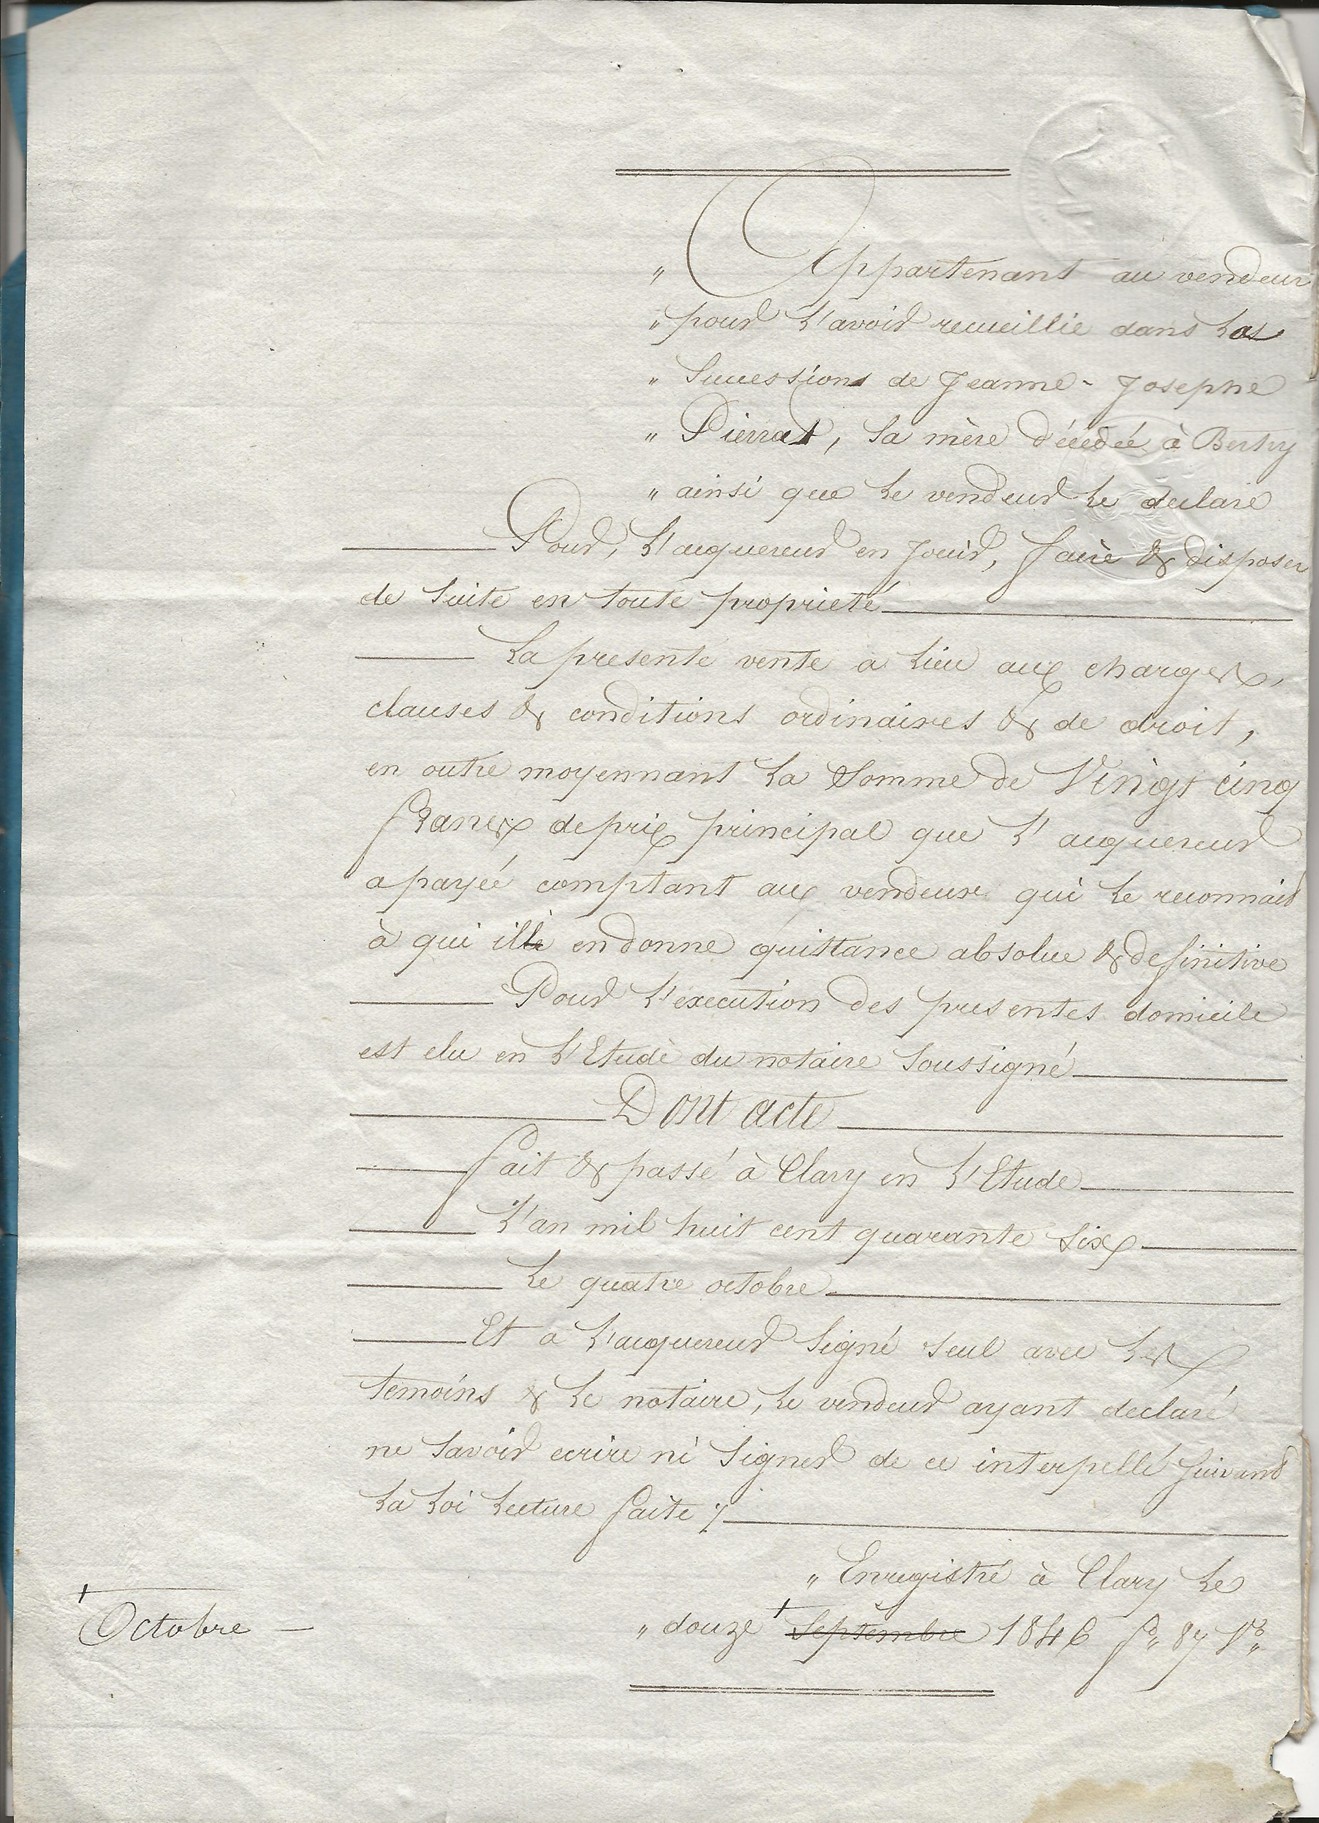 „ Appartenant au vendeur
„ pour l'avoir recueillie dans las
„ successions de Jeanne-Josephe
„ Pierrat, sa mère décedée à Bertry
„ ainsi que le vendeur le declare
Pour, l'acquereur en jouir, faire & disposer
de suite en toute proprieté
La presente vente a lieu aux charges,
clauses & conditions ordinaires & de droit,
en outre moyennant la somme de Vingt cinq
francs de prix principal que l'acquereur
a payée comptant aux vendeurs qui le reconnait
à qui il en donne quittance absolue & definitive
Pour l'execution des presentes domicile
est elu en l'Etude du notaire soussigné
Dont acte
fait & passé à Clary en l'Etude
L'an mil huit cent quarante six
Le quatre octobre
Et a l'acquereur signé seul avec les
temoins & le notaire, le vendeur ayant declaré
ne savoir ecrire ni signer de ce interpellé suivant
la loi lecture faite ./.
„ Enregistré à Clary le
„ douze + septembre 1846 fo„ 87 Vo„
+
Octobre —